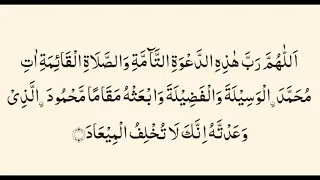 اَللّٰهُمَّ رَبَّ هٰذِهِ الدَّعْوَةِ التَّآمَّةِ وَالصَّلَاةِ الْقَائِمَةِ اٰتِ
مُحَمَّدَ ۨ الْوَسِيْلَةَ وَالْفَضِيْلَةَ وَابْعَثْهُ مَقَامًا مَّحْمُودَ ۨ الَّذِىْ
وَعَدْتَّهٗ اِنَّكَ لَا تُخْلِفُ الْمِيْعَادَ